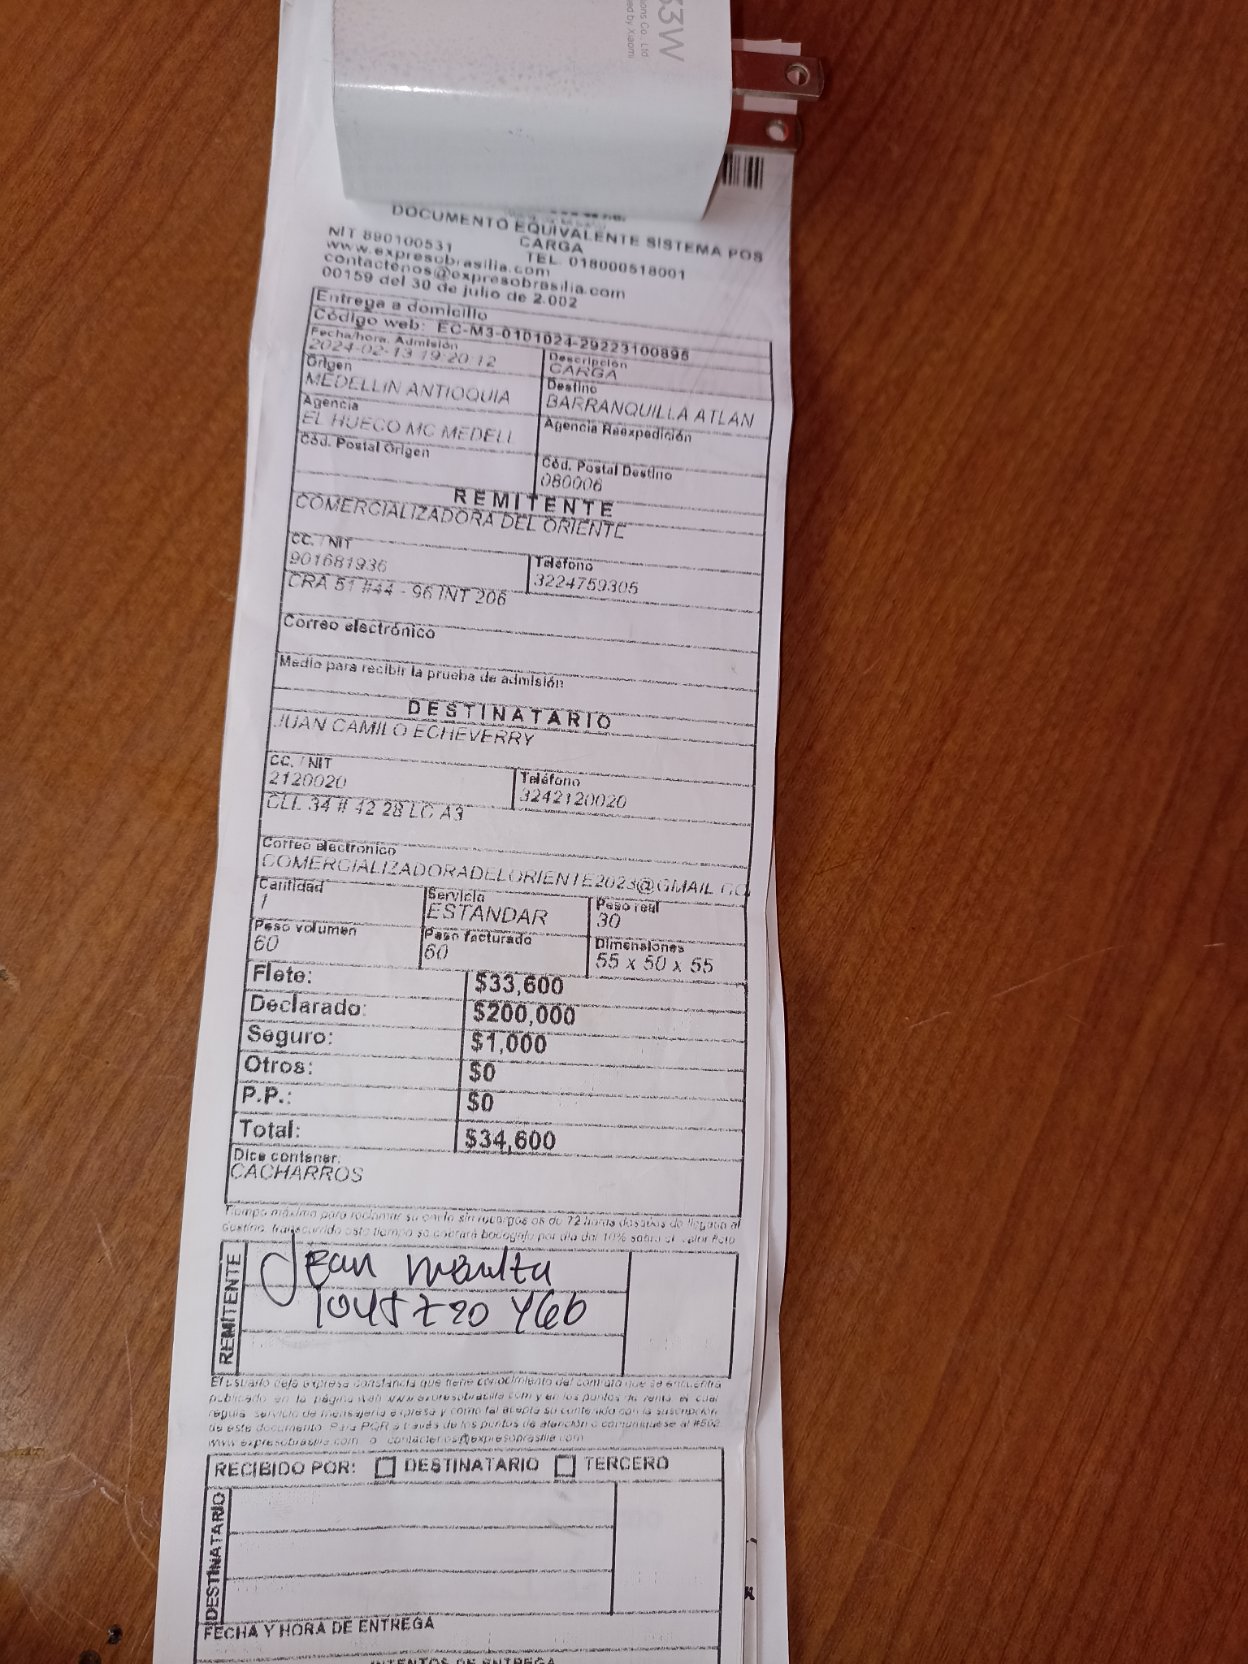 33W
ons Co., Ltd
ed by Xiaomi
DOCUMENTO EQUIVALENTE SISTEMA POS
CARGA
NIT 890100531 TEL. 018000518001
www.expresobrasilia.com
contactenos@expresobrasilia.com
00159 del 30 de julio de 2.002
Entrega a domicilio
Código web: EC-M3-0101024-29223100895
Fecha/hora. Admisión Descripción
2024-02-13 19:20:12 CARGA
Origen Destino
MEDELLIN ANTIOQUIA BARRANQUILLA ATLAN
Agencia Agencia Reexpedición
EL HUECO MC MEDELL
Cód. Postal Origen Cód. Postal Destino
080006
REMITENTE
COMERCIALIZADORA DEL ORIENTE
CC. / NIT Teléfono
901681936 3224759305
CRA 51 #44 - 96 INT 206
Correo electrónico
Medio para recibir la prueba de admisión
DESTINATARIO
JUAN CAMILO ECHEVERRY
CC. / NIT Teléfono
2120020 3242120020
CLL 34 # 42 28 LC A3
Correo electronico
COMERCIALIZADORADELORIENTE2023@GMAIL.CO
Cantidad Servicio Peso real
1 ESTANDAR 30
Peso volumen Peso facturado Dimensiones
60 60 55 x 50 x 55
Flete: $33,600
Declarado: $200,000
Seguro: $1,000
Otros: $0
P.P.: $0
Total: $34,600
Dice contener:
CACHARROS
Tiempo máximo para reclamar su envío sin recargos es de 72 horas después de llegado al
destino, transcurrido este tiempo se cobrará bodegaje por día del 10% sobre el valor flete
REMITENTE
Jean
1045720466
El usuario deja expresa constancia que tiene conocimiento del contrato que se encuentra
publicado en la página web www.expresobrasilia.com y en los puntos de venta, el cual
regula servicio de mensajería expresa y como tal acepta su contenido con la suscripción
de este documento. Para PQR a través de los puntos de atención o comuníquese al #502
www.expresobrasilia.com o contactenos@expresobrasilia.com
RECIBIDO POR: DESTINATARIO TERCERO
DESTINATARIO
FECHA Y HORA DE ENTREGA
INTENTOS DE ENTREGA